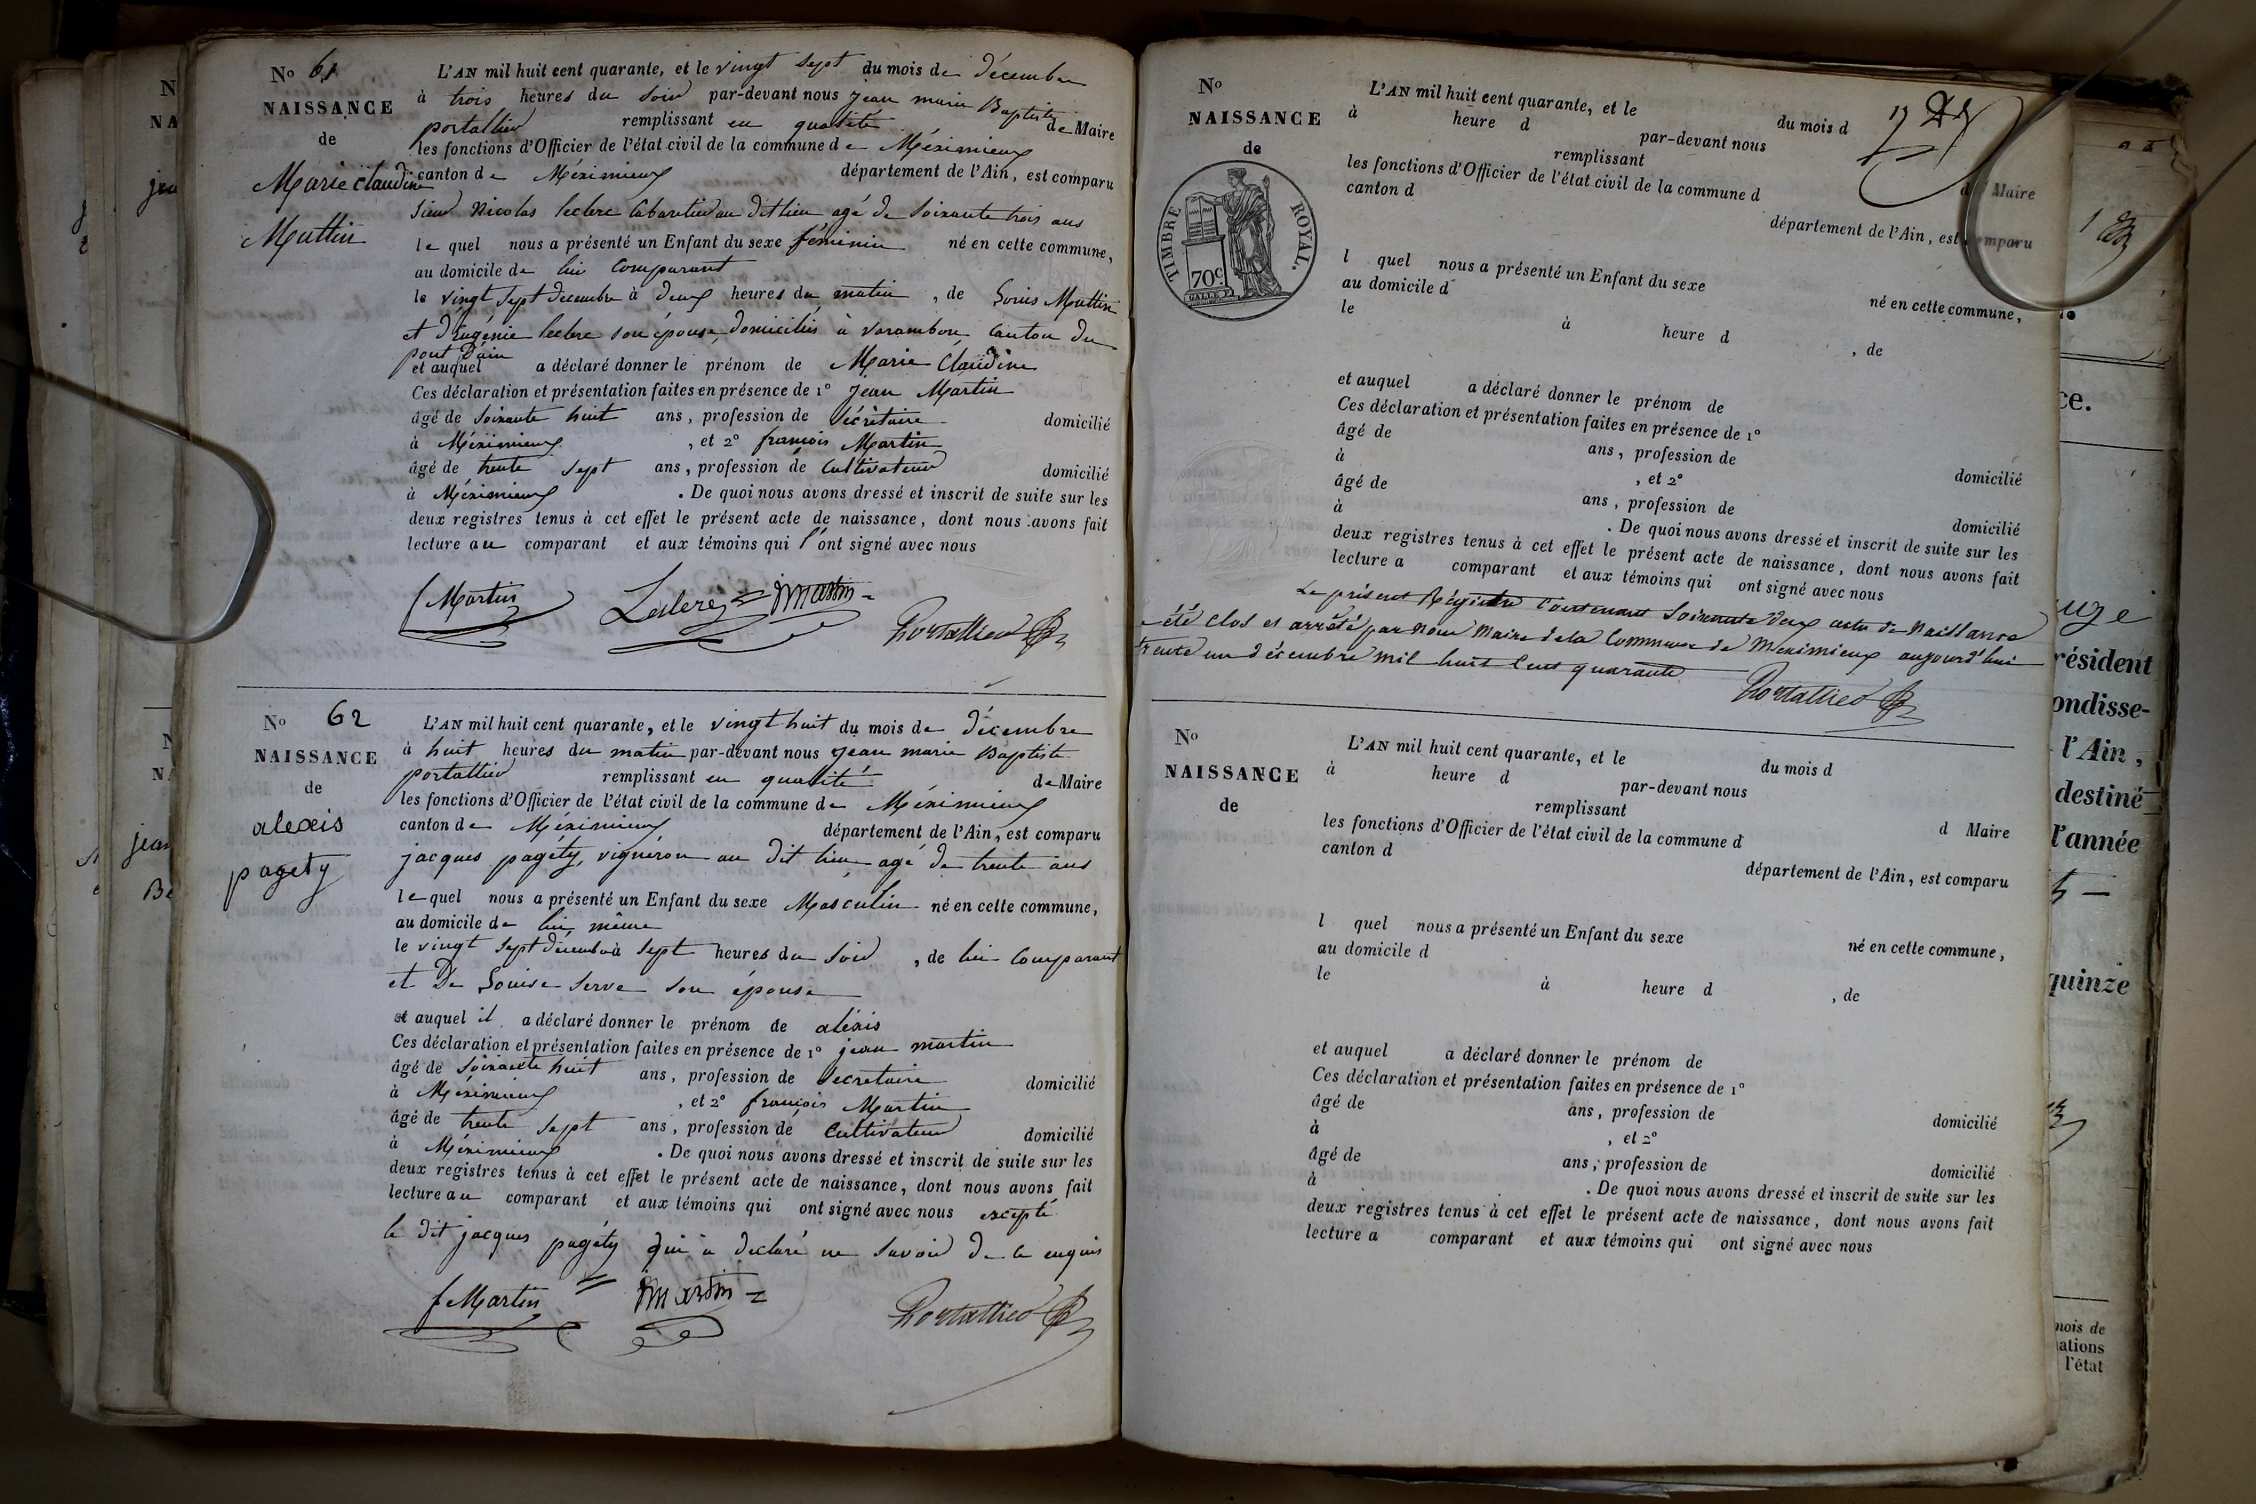 No 61
NAISSANCE
de
Marie Claudine
Muttin
L'AN mil huit cent quarante, et le vingt sept du mois de décembre
à trois heures du soir par-devant nous jean marie Baptiste
portallier remplissant en qualité de Maire
les fonctions d'Officier de l'état civil de la commune de Méximieux
canton de Méximieux département de l'Ain, est comparu
Sieur Nicolas leclerc Cabaretier au dit lieu agé de Soixante trois ans
le quel nous a présenté un Enfant du sexe féminin né en cette commune,
au domicile de lui Comparant
le vingt Sept decembre à deux heures du matin, de Louis Muttin
et d'Eugénie leclerc son épouse, domiciliés à varambon Canton du
pont d'ain
et auquel a déclaré donner le prénom de Marie Claudine
Ces déclaration et présentation faites en présence de 1° jean Martin
âgé de Soixante huit ans, profession de Sécrétaire domicilié
à Méximieux, et 2° françois Martin
âgé de trente sept ans, profession de Cultivateur domicilié
à Méximieux. De quoi nous avons dressé et inscrit de suite sur les
deux registres tenus à cet effet le présent acte de naissance, dont nous avons fait
lecture au comparant et aux témoins qui l'ont signé avec nous
f Martin Leclerc jmartin
Portallier
No 62
NAISSANCE
de
alexis
pagety
L'AN mil huit cent quarante, et le vingt huit du mois de décembre
à huit heures du matin par-devant nous jean marie Baptiste
portallier remplissant en qualité de Maire
les fonctions d'Officier de l'état civil de la commune de Méximieux
canton de Méximieux département de l'Ain, est comparu
jacques pagéty, vigneron au dit lieu agé de trente ans
le quel nous a présenté un Enfant du sexe Masculin né en cette commune,
au domicile de lui même
le vingt sept décembre à sept heures du soir, de lui Comparant
et De Louise Serve son épouse
et auquel il a déclaré donner le prénom de aléxis
Ces déclaration et présentation faites en présence de 1° jean martin
âgé de Soixante huit ans, profession de Secrétaire domicilié
à Méximieux, et 2° françois Martin
âgé de trente sept ans, profession de Cultivateur domicilié
à Méximieux. De quoi nous avons dressé et inscrit de suite sur les
deux registres tenus à cet effet le présent acte de naissance, dont nous avons fait
lecture au comparant et aux témoins qui ont signé avec nous excepté
le dit jacques pagéty qui a declaré ne Savoir de ce enquis
f Martin jmartin
Portallier
No
NAISSANCE
de
TIMBRE ROYAL.
70c.
L'AN mil huit cent quarante, et le du mois d
à heure d par-devant nous
remplissant d Maire
les fonctions d'Officier de l'état civil de la commune d
canton d département de l'Ain, est comparu
l quel nous a présenté un Enfant du sexe né en cette commune,
au domicile d
le à heure d , de
et auquel a déclaré donner le prénom de
Ces déclaration et présentation faites en présence de 1°
âgé de ans, profession de domicilié
à , et 2°
âgé de ans, profession de domicilié
à . De quoi nous avons dressé et inscrit de suite sur les
deux registres tenus à cet effet le présent acte de naissance, dont nous avons fait
lecture a comparant et aux témoins qui ont signé avec nous
Le présent Régistre Contenant Soixante deux actes de Naissance
a été clos et arrêté par nous Maire de la Commune de Meximieux aujourd'hui
trente un décembre mil huit Cent quarante
Portallier
No
NAISSANCE
de
L'AN mil huit cent quarante, et le du mois d
à heure d par-devant nous
remplissant d Maire
les fonctions d'Officier de l'état civil de la commune d
canton d département de l'Ain, est comparu
l quel nous a présenté un Enfant du sexe né en cette commune,
au domicile d
le à heure d , de
et auquel a déclaré donner le prénom de
Ces déclaration et présentation faites en présence de 1°
âgé de ans, profession de domicilié
à , et 2°
âgé de ans, profession de domicilié
à . De quoi nous avons dressé et inscrit de suite sur les
deux registres tenus à cet effet le présent acte de naissance, dont nous avons fait
lecture a comparant et aux témoins qui ont signé avec nous
ce.
résident
ondisse-
l'Ain,
destiné
l'année
quinze
mois de
ations
l'état